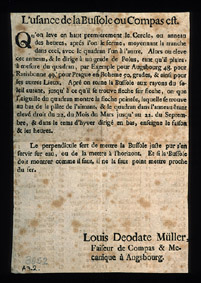 L'usance de la Bussole ou Compas est.
Qu'on leve en haut premierement le Cercle, ou anneau
des heures, après l'on le ferme, moyennant la tranche
dans ceci, avec le quadran l'un à l'autre. Alors on eleve
cet anneau, & le dirige au grade de Polus,
à mesure du quadran, par Exemple pour Augsbourg 48. pour
Ratisbonne 49. pour Prague en Boheme 50. grades, & ainsi pour
les autres Lieux. Après on tourne la Bussole aux rayons du So-
leil autant, jusqu'à ce qu'il se trouve fleche sur fleche, ou que
l'aiguille du quadran montre la fleche peinte, laquelle se trouve
au bas de la pillee de l'aimant, & le quadran dans l'anneau
droit du 22. du Mois de Mars jusqu'au 22. du Septem-
bre, & dans le tems d'hyver dirigé en bas, enseigne la saison
& les heures.
Le perpendicule sert de mettre la Bussole juste par s'en
servir sur eau, ou de la mettre à l'horizont. Et si la Bussole
doit montrer comme il faut, il ne la faut point mettre proche
du fer.
Louis Deodate Müller,
Faiseur de Compas & Me-
canique à Augsbourg.